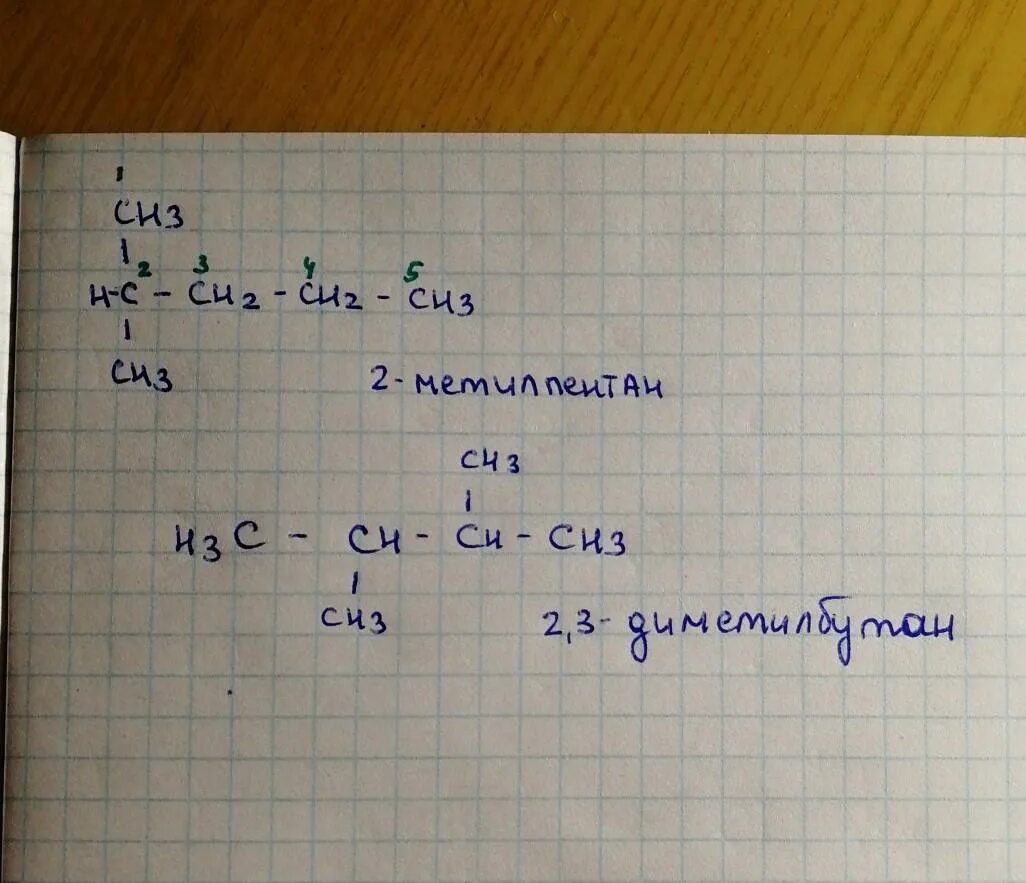 1
CH3
2 3 4 5
H-C - CH2 - CH2 - CH3
CH3
2-метилпентан
CH3
H3C - CH - CH - CH3
CH3
2,3-диметилбутан